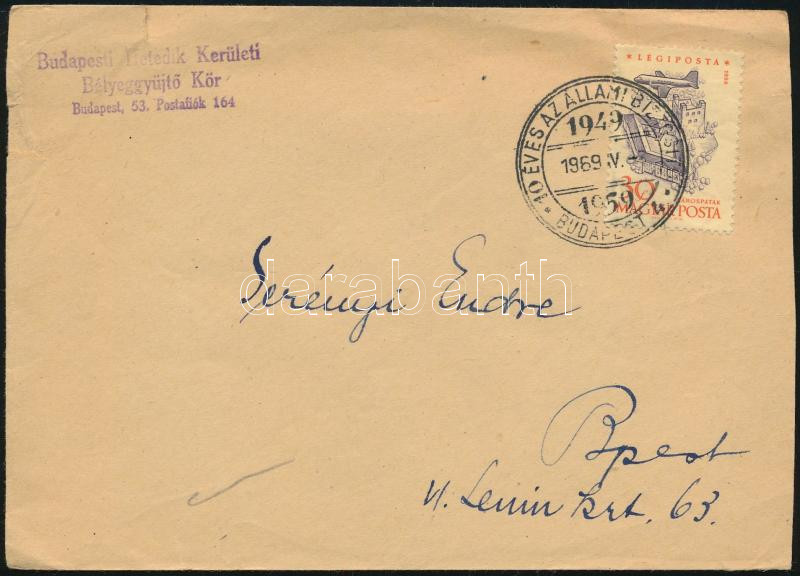 Budapesti Hetedik Kerületi
Bélyeggyüjtő Kör
Budapest, 53. Postafiók 164
* LÉGIPOSTA *
1958
10 ÉVES AZ ÁLLAMI
1949
1969 IV.
1959
* BUDAPEST
30
SÁROSPATAK
MAGYAR POSTA
Serényi Endre
darabanth
Bpest
VI. Lenin krt. 63.